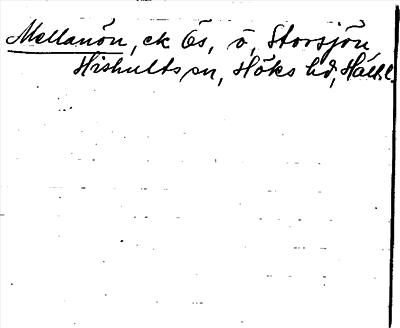 Mellanön, ek Ös, ö, Storsjön,
Hishults sn, Höks hd, Hall. l.